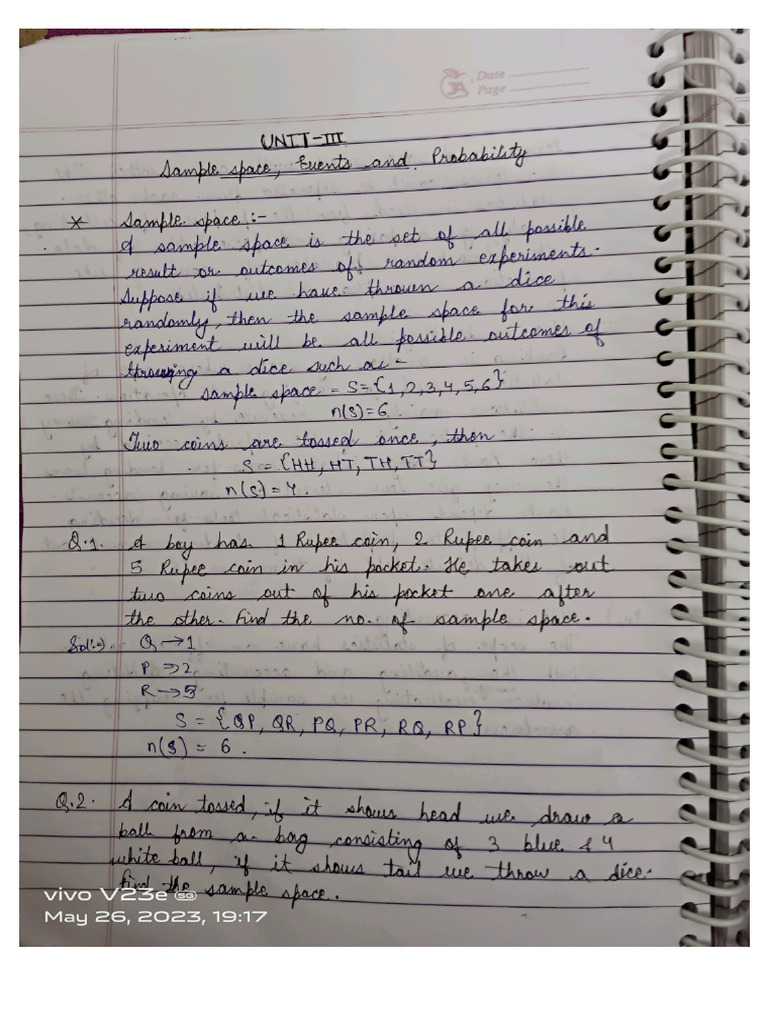 Date
Page
UNIT-III
Sample space, Events and Probability
* Sample space :-
A sample space is the set of all possible
result or outcomes of random experiments.
Suppose if we have thrown a dice
randomly, then the sample space for this
experiment will be all possible outcomes of
throwing a dice such as -
sample space = S = {1,2,3,4,5,6}
n(S)=6
Two coins are tossed once, then
S = {HH, HT, TH, TT}
n(S) = 4.
Q.1. A boy has 1 Rupee coin, 2 Rupee coin and
5 Rupee coin in his pocket. He takes out
two coins out of his pocket one after
the other. Find the no. of sample space.
Sol:-). Q → 1
P ⇒ 2
R → 5
S = {QP, QR, PQ, PR, RQ, RP}
n(S) = 6.
Q.2. A coin tossed, if it shows head we draw a
ball from a bag consisting of 3 blue & 4
white ball, if it shows tail we throw a dice.
Find the sample space.
vivo V23e 5G
May 26, 2023, 19:17